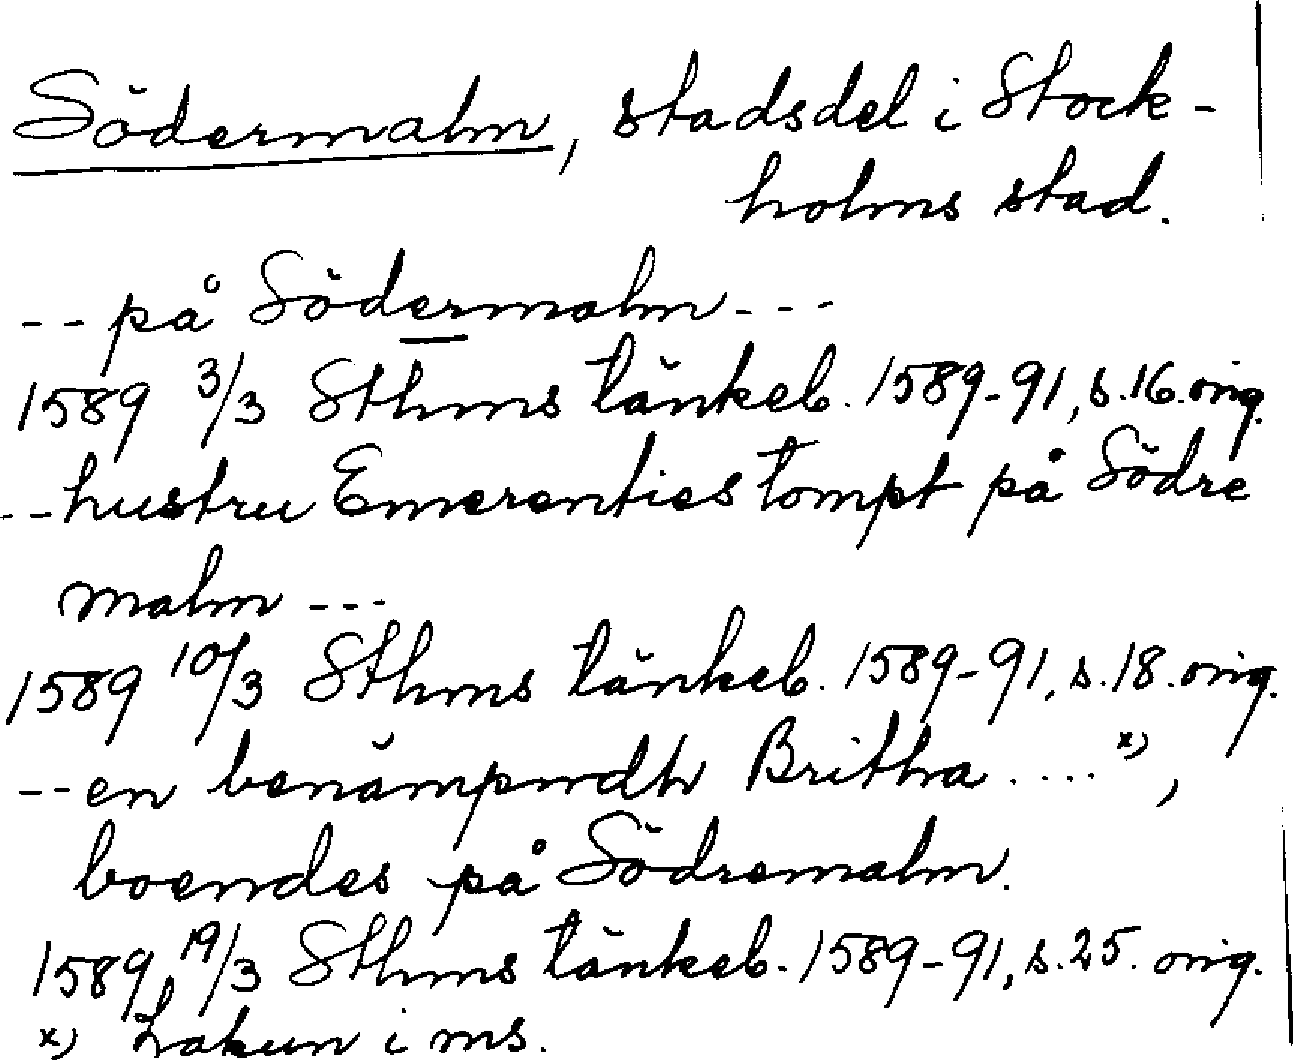 Södermalm, stadsdel i Stock-
holms stad.
-- på Södermalm ---
1589 3/3 Sthms tänkeb. 1589-91, s. 16. orig.
-- hustru Emerenties tompt på Södre
malm ---
1589 10/3 Sthms tänkeb. 1589-91, s. 18. orig.
-- en benämpndh Britha ....x),
boendes på Södremalm.
1589 19/3 Sthms tänkeb. 1589-91, s. 25. orig.
x) Lakun i ms.